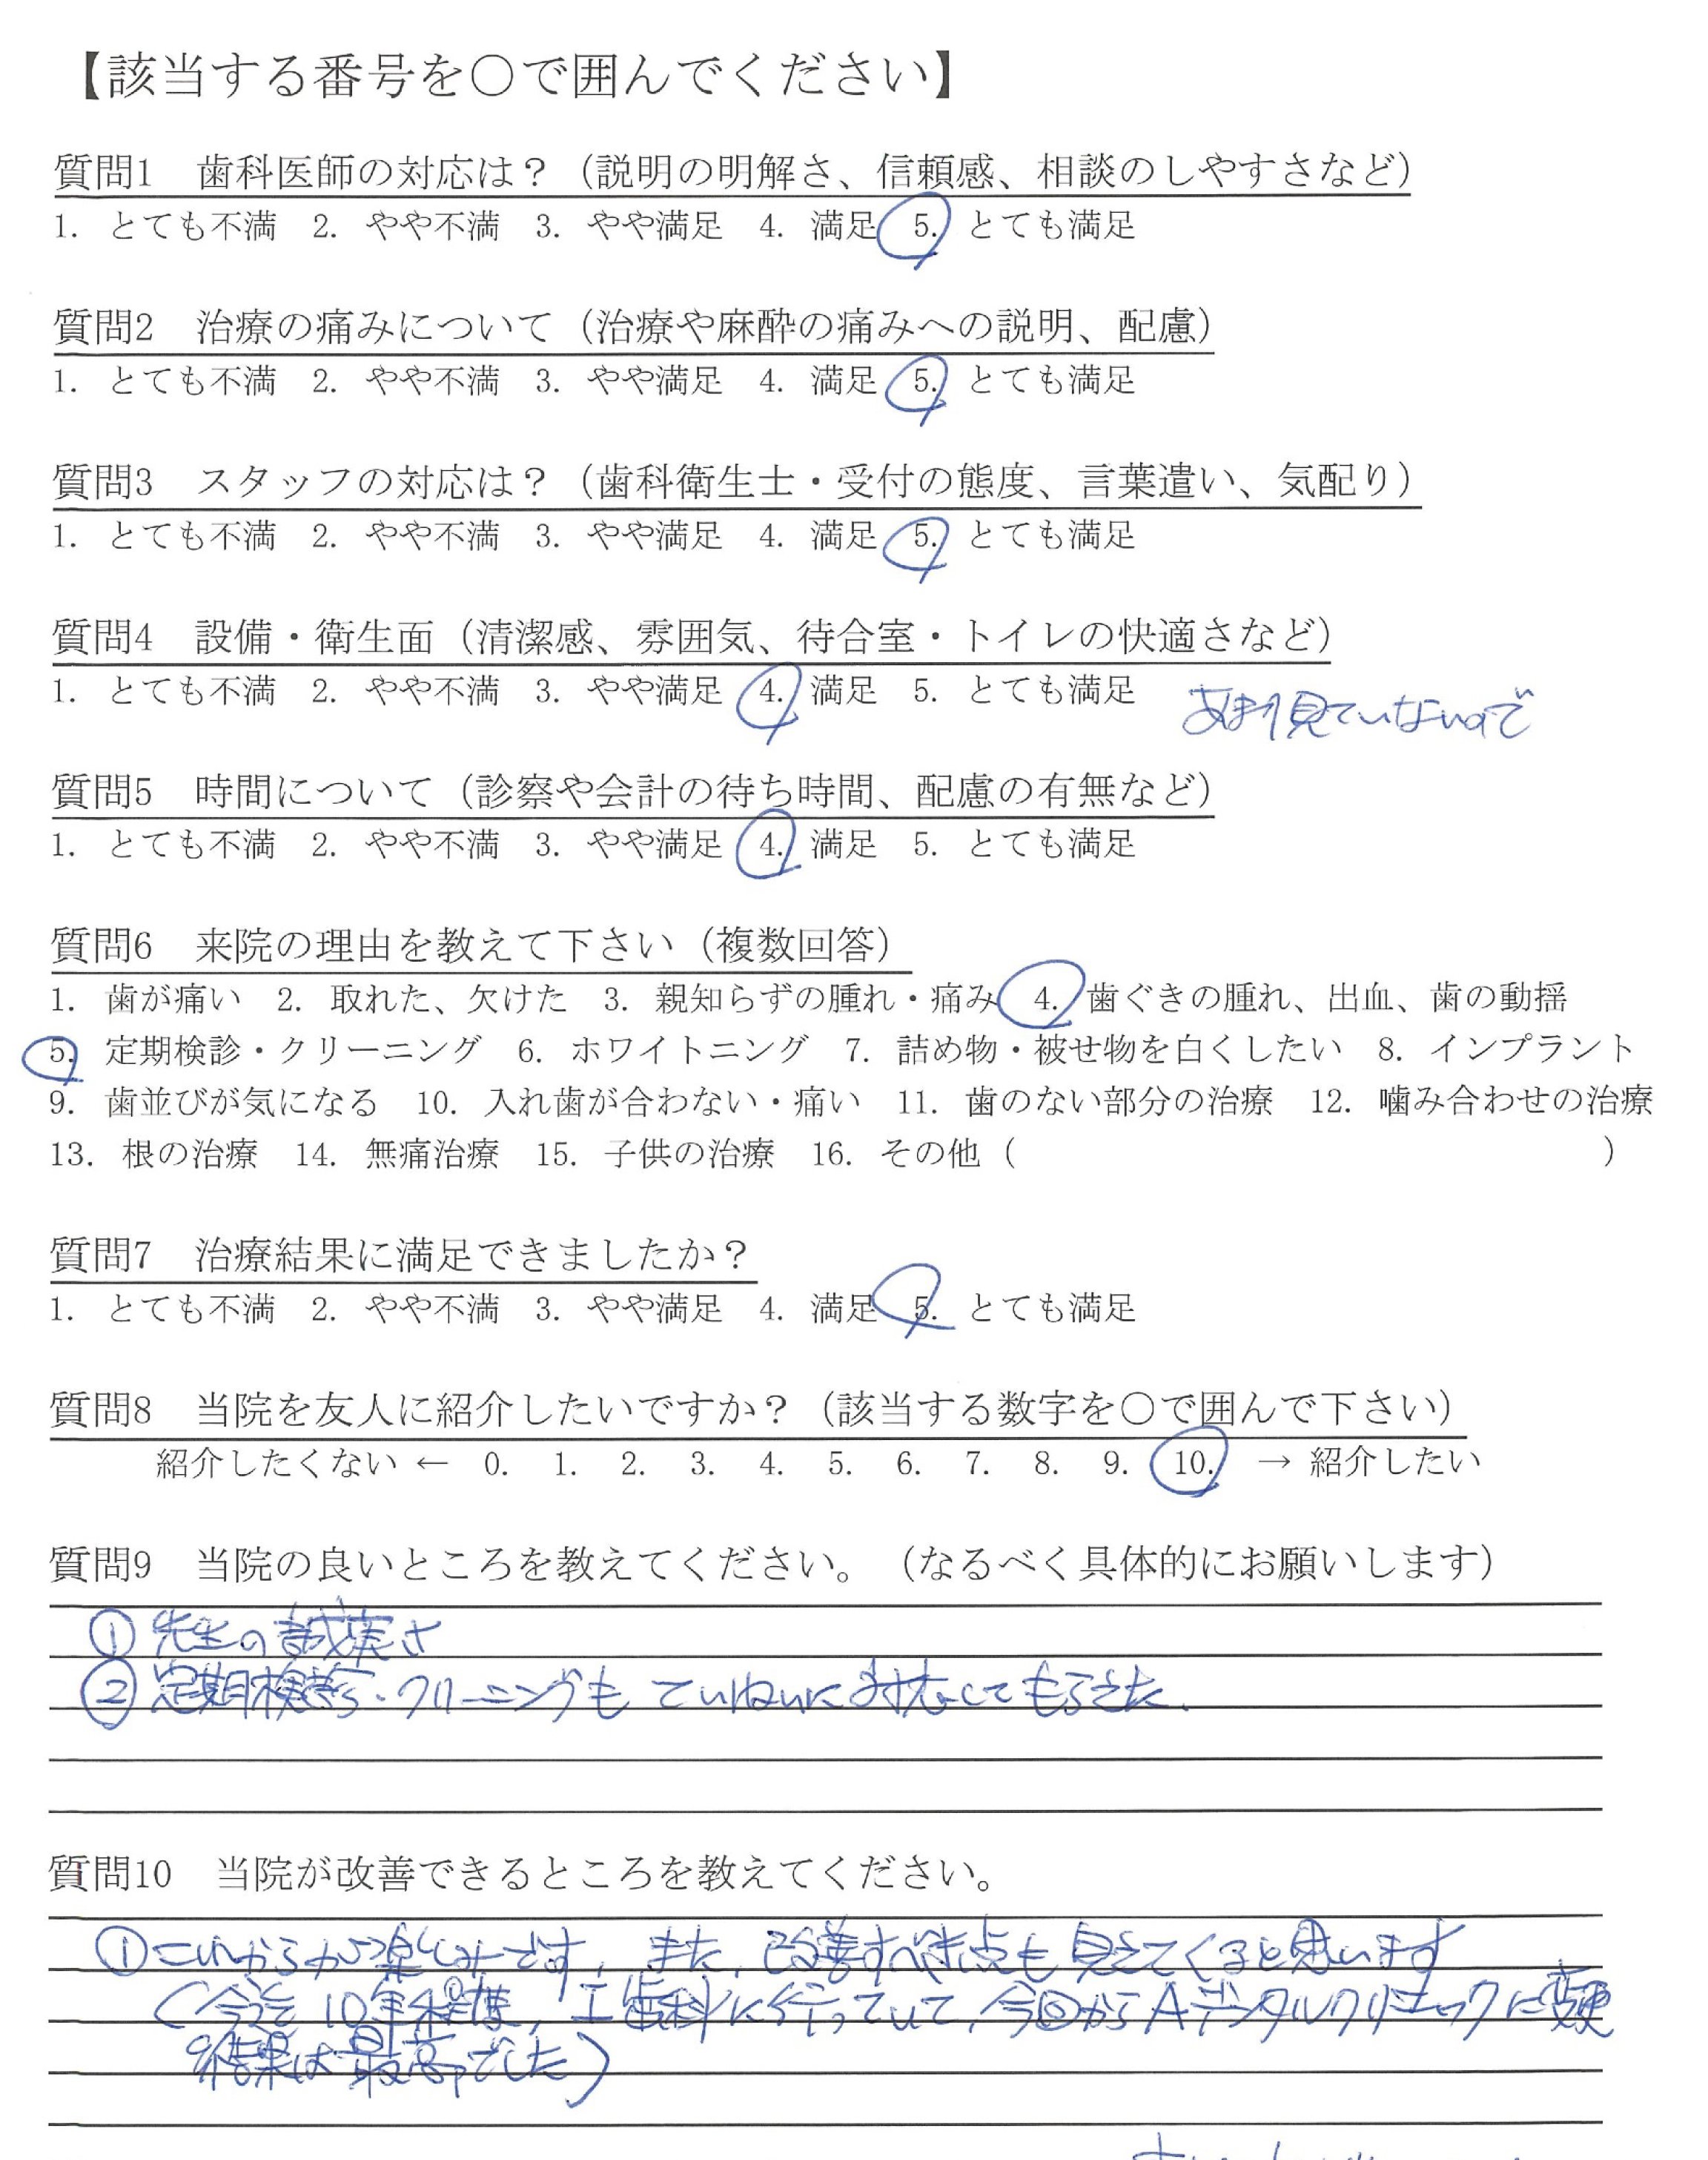 【該当する番号を○で囲んでください】
質問1　歯科医師の対応は？（説明の明解さ、信頼感、相談のしやすさなど）
1. とても不満　2. やや不満　3. やや満足　4. 満足　5. とても満足
質問2　治療の痛みについて（治療や麻酔の痛みへの説明、配慮）
1. とても不満　2. やや不満　3. やや満足　4. 満足　5. とても満足
質問3　スタッフの対応は？（歯科衛生士・受付の態度、言葉遣い、気配り）
1. とても不満　2. やや不満　3. やや満足　4. 満足　5. とても満足
質問4　設備・衛生面（清潔感、雰囲気、待合室・トイレの快適さなど）
1. とても不満　2. やや不満　3. やや満足　4. 満足　5. とても満足　あまり見ていないので
質問5　時間について（診察や会計の待ち時間、配慮の有無など）
1. とても不満　2. やや不満　3. やや満足　4. 満足　5. とても満足
質問6　来院の理由を教えて下さい（複数回答）
1. 歯が痛い　2. 取れた、欠けた　3. 親知らずの腫れ・痛み　4. 歯ぐきの腫れ、出血、歯の動揺
5. 定期検診・クリーニング　6. ホワイトニング　7. 詰め物・被せ物を白くしたい　8. インプラント
9. 歯並びが気になる　10. 入れ歯が合わない・痛い　11. 歯のない部分の治療　12. 噛み合わせの治療
13. 根の治療　14. 無痛治療　15. 子供の治療　16. その他（　　　　　　　　）
質問7　治療結果に満足できましたか？
1. とても不満　2. やや不満　3. やや満足　4. 満足　5. とても満足
質問8　当院を友人に紹介したいですか？（該当する数字を○で囲んで下さい）
紹介したくない ← 0. 1. 2. 3. 4. 5. 6. 7. 8. 9. 10. → 紹介したい
質問9　当院の良いところを教えてください。（なるべく具体的にお願いします）
① 先生の誠実さ
② 定期検診・クリーニングも ていねいに対応してもらえた.
質問10　当院が改善できるところを教えてください。
① これからが楽しみです, また, 改善すべき点も見えてくると思います
（今迄 10年程度, 歯科に行っていて, 今回からAデンタルクリニックに変更
結果は最高でした）